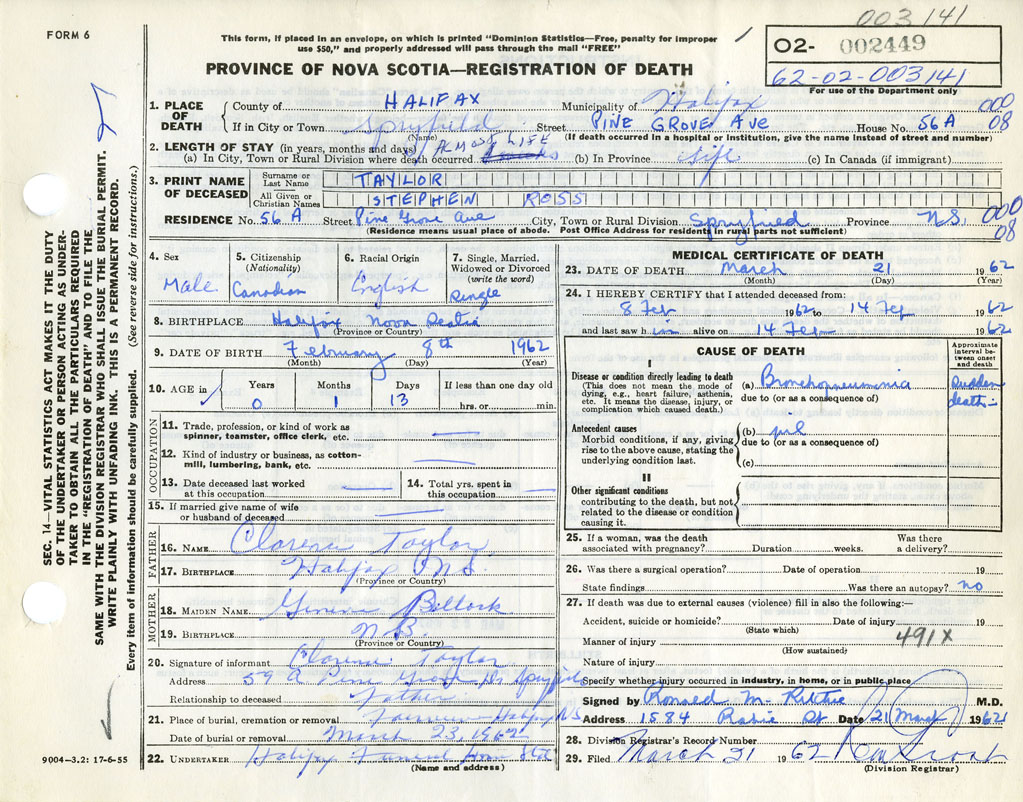 003141
FORM 6
This form, if placed in an envelope, on which is printed "Dominion Statistics—Free, penalty for improper
use $50," and properly addressed will pass through the mail "FREE"
02- 002449
62-02-003141
For use of the Department only
PROVINCE OF NOVA SCOTIA—REGISTRATION OF DEATH
1. PLACE OF DEATH
County of HALIFAX Municipality of Halifax 000
If in City or Town Spryfield Street PINE GROVE AVE House No. 56 A 08
(Name) (If death occurred in a hospital or institution, give the name instead of street and number)
2. LENGTH OF STAY (in years, months and days) ALMOST LIFE
(a) In City, Town or Rural Division where death occurred (b) In Province Life (c) In Canada (if immigrant)
3. PRINT NAME OF DECEASED
Surname or Last Name TAYLOR
All Given or Christian Names STEPHEN ROSS
RESIDENCE No. 56 A Street Pine Grove Ave City, Town or Rural Division Spryfield Province N.S. 000
08
(Residence means usual place of abode. Post Office Address for residents in rural parts not sufficient)
4. Sex
Male
5. Citizenship
(Nationality)
Canadian
6. Racial Origin
English
7. Single, Married,
Widowed or Divorced
(write the word)
Single
8. BIRTHPLACE Halifax Nova Scotia
(Province or Country)
9. DATE OF BIRTH February 8th 1962
(Month) (Day) (Year)
10. AGE in
Years Months Days If less than one day old
0 1 13 hrs. or min.
OCCUPATION
11. Trade, profession, or kind of work as
spinner, teamster, office clerk, etc.
12. Kind of industry or business, as cotton-
mill, lumbering, bank, etc.
13. Date deceased last worked
at this occupation
14. Total yrs. spent in
this occupation
15. If married give name of wife
or husband of deceased
FATHER
16. NAME Clarence Taylor
17. BIRTHPLACE Halifax N.S.
(Province or Country)
MOTHER
18. MAIDEN NAME
19. BIRTHPLACE N.B.
(Province or Country)
20. Signature of informant Clarence Taylor
Address
Relationship to deceased Father
21. Place of burial, cremation or removal Fairview Halifax NS
Date of burial or removal March 23, 1962
22. UNDERTAKER Halifax Funeral Home Ltd
(Name and address)
9004—3.2: 17-6-55
MEDICAL CERTIFICATE OF DEATH
23. DATE OF DEATH March 21 1962
(Month) (Day) (Year)
24. I HEREBY CERTIFY that I attended deceased from:
8 Feb 1962 to 14 Feb 1962
and last saw him alive on 14 Feb 1962
CAUSE OF DEATH
Approximate
interval be-
tween onset
and death
I
Disease or condition directly leading to death
(This does not mean the mode of
dying, e.g., heart failure, asthenia,
etc. It means the disease, injury, or
complication which caused death.)
(a) Bronchopneumonia
due to (or as a consequence of)
Sudden
death
Antecedent causes
Morbid conditions, if any, giving
rise to the above cause, stating the
underlying condition last.
(b) nil
due to (or as a consequence of)
(c)
II
Other significant conditions
contributing to the death, but not
related to the disease or condition
causing it.
25. If a woman, was the death
associated with pregnancy? Duration weeks. Was there
a delivery?
26. Was there a surgical operation? Date of operation 19
State findings Was there an autopsy? no
27. If death was due to external causes (violence) fill in also the following:—
Accident, suicide or homicide? Date of injury 19
(State which)
Manner of injury 491X
(How sustained)
Nature of injury
Specify whether injury occurred in industry, in home, or in public place
Signed by Ronald M. Ritchie M.D.
Address 1584 Robie St Date 21 March 1962
28. Division Registrar's Record Number
29. Filed March 21 1962
(Division Registrar)
SEC. 14—VITAL STATISTICS ACT MAKES IT THE DUTY
OF THE UNDERTAKER OR PERSON ACTING AS UNDER-
TAKER TO OBTAIN ALL THE PARTICULARS REQUIRED
IN THE "REGISTRATION OF DEATH" AND TO FILE THE
SAME WITH THE DIVISION REGISTRAR WHO SHALL ISSUE THE BURIAL PERMIT.
WRITE PLAINLY WITH UNFADING INK. THIS IS A PERMANENT RECORD.
Every item of information should be carefully supplied. (See reverse side for instructions.)